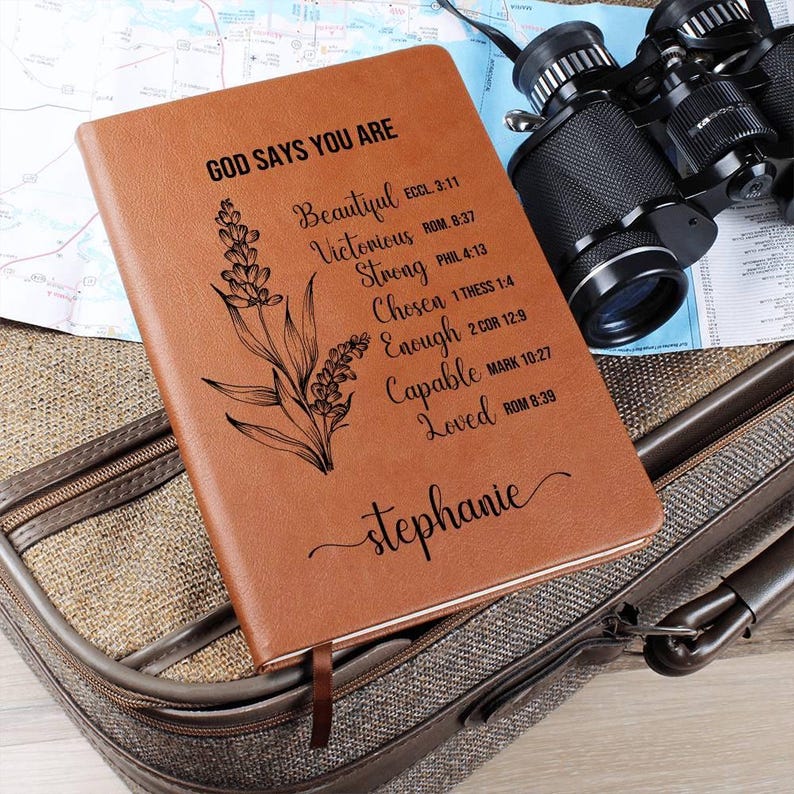 GOD SAYS YOU ARE
Beautiful ECCL. 3:11
Victorious ROM. 8:37
Strong PHIL 4:13
Chosen 1 THESS 1:4
Enough 2 COR 12:9
Capable MARK 10:27
Loved ROM 8:39
stephanie